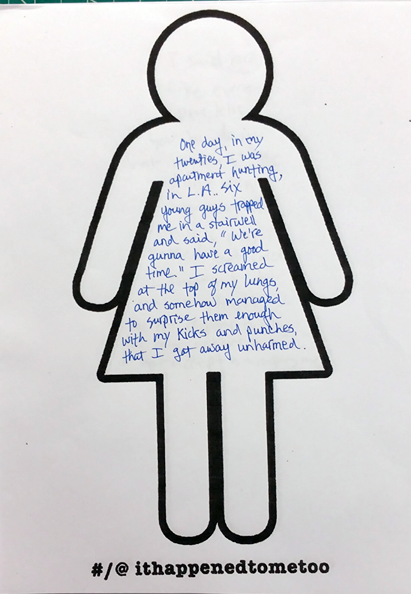 One day, in my
twenties, I was
apartment hunting,
in L.A.. Six
young guys trapped
me in a stairwell
and said, "We're
gunna have a good
time." I screamed
at the top of my lungs
and somehow managed
to surprise them enough
with my kicks and punches,
that I got away unharmed.
#/@ ithappenedtometoo